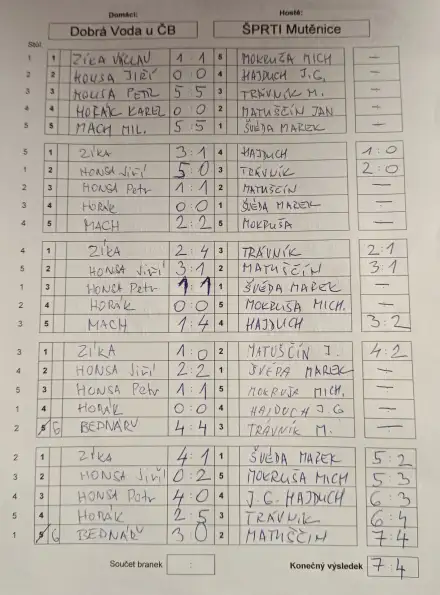 Domácí: Hosté:
Dobrá Voda u ČB ŠPRTI Mutěnice
Stůl
1 1 ZÍKA VÁCLAV 1 : 1 5 MOKRUŠA MICH —
2 2 HONSA JIŘÍ 0 : 0 4 HAJDUCH J.G. —
3 3 HONSA PETR 5 : 5 3 TRÁVNÍK M. —
4 4 HORÁK KAREL 0 : 0 2 MATUŠČÍN JAN —
5 5 MACH MIL. 5 : 5 1 ŠVÉDA MAREK —
5 1 ZÍKA 3 : 1 4 HAJDUCH 1 : 0
1 2 HONSA Jiří 5 : 0 3 TRÁVNÍK 2 : 0
2 3 HONSA Petr 1 : 1 2 MATUŠČÍN —
3 4 HORÁK 0 : 0 1 ŠVÉDA MAREK —
4 5 MACH 2 : 2 5 MOKRUŠA —
4 1 ZÍKA 2 : 4 3 TRÁVNÍK 2 : 1
5 2 HONSA Jiří 3 : 1 2 MATUŠČÍN 3 : 1
1 3 HONSA Petr 1 : 1 1 ŠVÉDA MAREK —
2 4 HORÁK 0 : 0 5 MOKRUŠA MICH. —
3 5 MACH 1 : 4 4 HAJDUCH 3 : 2
3 1 ZÍKA 1 : 0 2 MATUŠČÍN J. 4 : 2
4 2 HONSA Jiří 2 : 2 1 ŠVÉDA MAREK —
5 3 HONSA Petr 1 : 1 5 MOKRUŠA MICH. —
1 4 HORÁK 0 : 0 4 HAJDUCH J.G —
2 6 BEDNÁŘ 4 : 4 3 TRÁVNÍK M. —
2 1 ZÍKA 4 : 1 1 ŠVÉDA MAREK 5 : 2
3 2 HONSA Jiří 0 : 2 5 MOKRUŠA MICH 5 : 3
4 3 HONSA Petr 4 : 0 4 J.G. HAJDUCH 6 : 3
5 4 HORÁK 2 : 5 3 TRÁVNÍK 6 : 4
1 6 BEDNÁŘ 3 : 0 2 MATUŠČÍN 7 : 4
Součet branek : Konečný výsledek 7 : 4